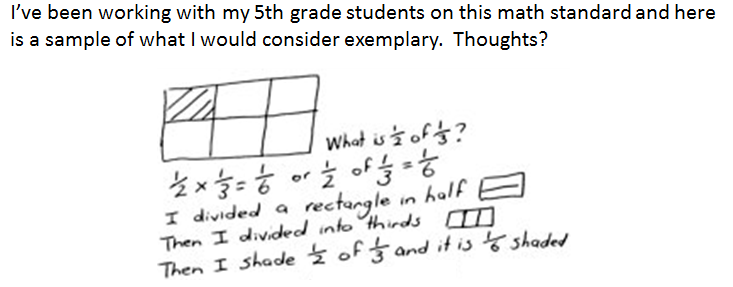 I've been working with my 5th grade students on this math standard and here
is a sample of what I would consider exemplary.  Thoughts?
What is 1/2 of 1/3?
1/2 × 1/3 = 1/6 or 1/2 of 1/3 = 1/6
I divided a rectangle in half
Then I divided into thirds
Then I shade 1/2 of 1/3 and it is 1/6 shaded